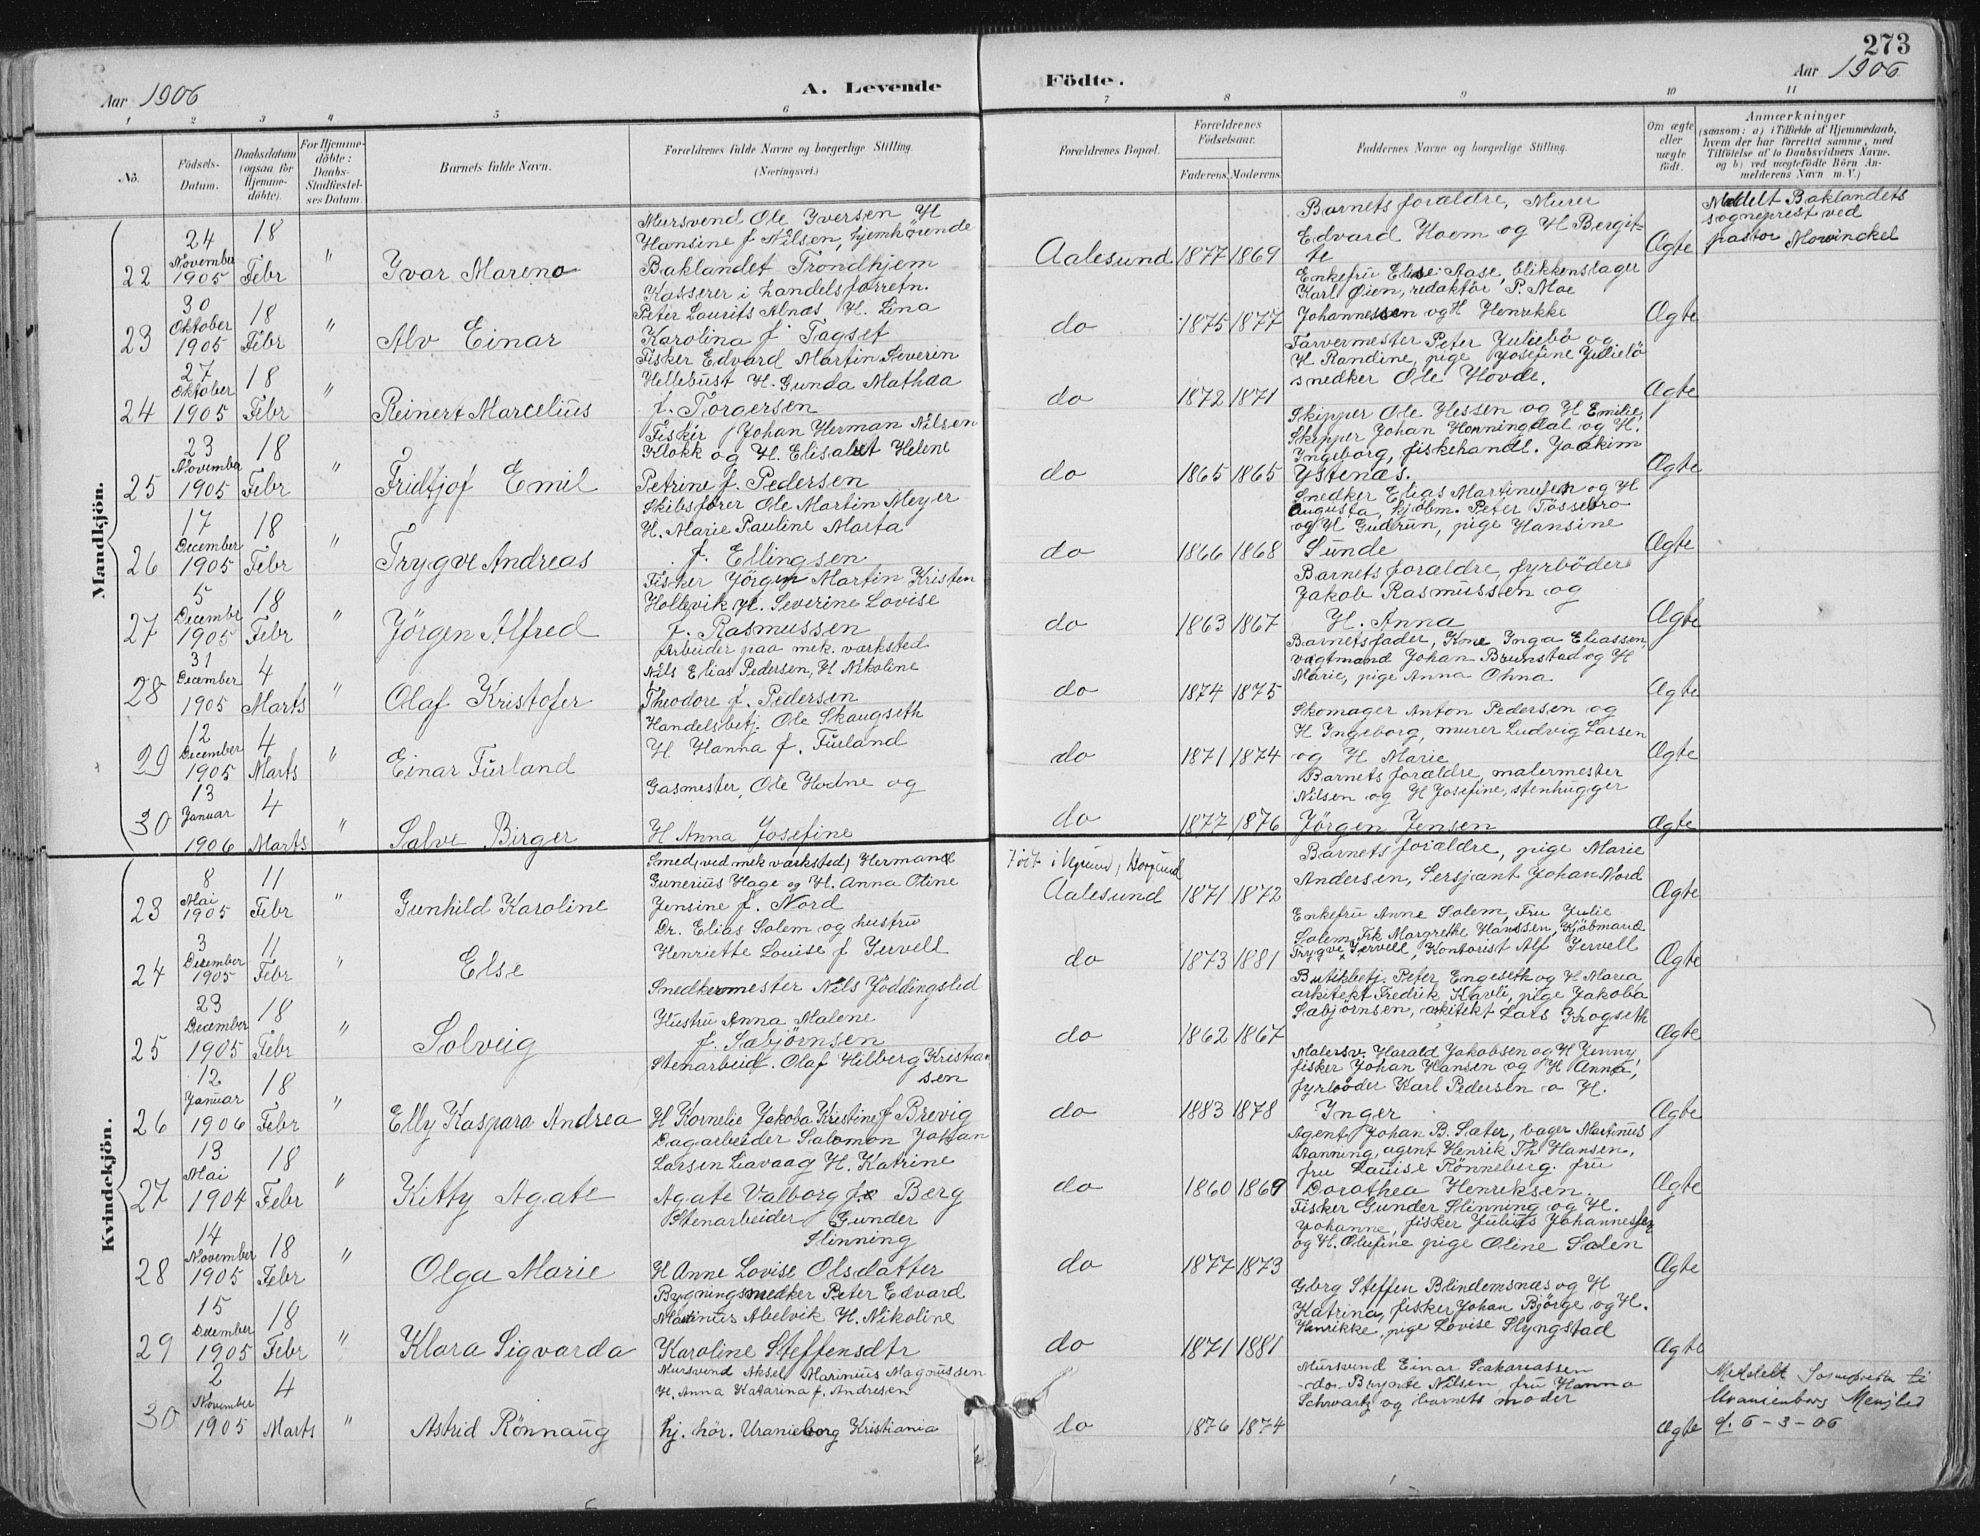 273
Aar 1906
A. Levende
Födte.
Aar 1906
1 2 3 4 5 6 7 8 9 10 11
No.
Födsels-
Datum.
Daabsdatum
(ogsaa for
Hjemme-
döbte).
For Hjemme-
döbte:
Daabs-
Stadfæstel-
ses Datum.
Barnets fulde Navn.
Forældrenes fulde Navne og borgerlige Stilling.
(Næringsvei.)
Forældrenes Bopæl.
Forældrenes
Födselsaar.
Faderens. Moderens.
Faddernes Navne og borgerlige Stilling.
Om ægte
eller
uægte
födt.
Anmærkninger
(saasom: a) i Tilfælde af Hjemmedaab,
hvem der har forrettet samme, med
Tilföielse af to Daabsvidners Navne.
og b) ved uægtefödte Börn An-
melderens Navn m. V.)
Mandkjön.
22
24
November
1905
18
Febr
"
Yvar Mareno
Mursvend Ole Yversen H
Hansine f Nilsen, hjemhörende
Baklandet Trondhjem
Aalesund
1877 1869
Barnets forældre, Murer
Edvard Hoem og H Bergit-
te
Ægte
Meddelt Baklandets
sogneprest ved
pastor Mowinckel
23
30
Oktober
1905
18
Febr
"
Alv Einar
Kasserer i handelsforretn.
Peter Laurits Alnæs H. Lina
Karolina f. Tagset
do
1875 1877
Enkefru Elise Aase, blikkenslager
Karl Öien, redaktör P. Moe
Johannessen og H Henrikke
Ægte
24
27
Oktober
1905
18
Febr
"
Reinert Marcelius
Fisker Edvard Martin Severin
Hellebust H. Gunda Mathea
f. Torgersen
do
1872 1871
Farvermester Peter Juliebö og
H Randine, pige Josefine Juliebö
snedker Ole Hovde.
Ægte
25
23
November
1905
18
Febr
"
Fridtjof Emil
Fisker Johan Herman Nilsen
Klokk og H. Elisabet Helene
Petrine f. Pedersen
do
1865 1865
Skipper Ole Hessen og H Emilie,
Skipper Johan Honningdal og H.
Ingeborg, fiskehandl. Joakim
Ystenæs.
Ægte
26
17
December
1905
18
Febr
"
Trygve Andreas
Skibsförer Ole Martin Meyer
H. Marie Pauline Marta
f. Ellingsen
do
1866 1868
Snedker Elias Martinusen og H
Augusta, kjöbm. Peter Fossebro
og H Gudrun, pige Hansine
Sunde
Ægte
27
5
December
1905
18
Febr
"
Jörgen Alfred
Fisker Jörgen Martin Kristen
Hollevik H. Severine Lovise
f. Rasmussen
do
1863 1867
Barnets forældre, fyrböder
Jakob Rasmussen og
H. Anna
Ægte
28
31
December
1905
4
Marts
"
Olaf Kristofer
Arbeider paa mek. værksted
Nils Elias Pedersen, H Nikoline
Theodore f. Pedersen
do
1874 1875
Barnets fader, Kone Inga Eliassen,
vagtmand Johan Brunstad og H
Marie, pige Anna Ohna
Ægte
29
12
December
1905
4
Marts
"
Einar Furland
Handelsbetj. Ole Skaugseth
H Hanna f. Furland
do
1871 1874
Skomager Anton Pedersen og
H Ingeborg, murer Ludvig Larsen
og H Marie
Ægte
30
13
Januar
1906
4
Marts
"
Salve Birger
Gasmester, Ole Hodne og
H Anna Josefine
do
1877 1876
Barnets forældre, malermester
Nilsen og H Josefine, stenhugger
Jörgen Jensen
Ægte
Kvindekjön.
23
8
Mai
1905
11
Febr
"
Gunhild Karoline
Smed (ved mek værksted) Herman
Gunerius Hage og H. Anna Oline
Jensine f. Nord
Födt i Vegsund, Borgund
Aalesund
1871 1872
Barnets forældre, pige Marie
Andersen, Sersjant Johan Nord
Ægte
24
3
December
1905
11
Febr
"
Else
Dr. Elias Solem og hustru
Henriette Louise f Jervell
do
1873 1881
Enkefru Anne Solem, Fru Julie
Solem, Frk Margrethe Hanssen, Kjöbmand
Trygve Jervell, Kontorist Alf Jervell
Ægte
25
23
December
1905
18
Febr
"
Solveig
Snedkermester Nils Jöddingslid
Hustru Anna Malene
f. Sæbjörnsen
do
1862 1867
Butikbetj. Peter Engeseth og H Maria,
arkitekt Fredrik Kavli, pige Jakoba
Sæbjörnsen, arkitekt Lars Krogseth
Ægte
26
12
Januar
1906
18
Febr
"
Elly Kaspara Andrea
Stenarbeid. Olaf Hilberg Kristian
sen
H Kornelie Jakoba Kristine f Brevig
do
1883 1878
Malersv. Harald Jakobsen og H Jenny,
fisker Johan Hansen og H Anna,
fyrböder Karl Pedersen o H.
Inger
Ægte
27
13
Mai
1904
18
Febr
"
Kitty Agate
Dagarbeider Salomon Johan
Larsen Leavaag H. Katrine
Agate Valborg f Berg
do
1860 1869
Agent Johan B. Sæter, bager Martinus
Stanning, agent Henrik Th Hansen,
fru Louise Rönneberg. fru
Dorothea Henriksen.
Ægte
28
14
November
1905
18
Febr
"
Olga Marie
Stenarbeider Gunder
Slinning
H Anne Lovise Olsdatter
do
1877 1873
Fisker Gunder Slinning og H.
Johanne, fisker Julius Johannessen
og H. Olufine pige Oline Salen
Ægte
29
15
December
1905
18
Febr
"
Klara Sigvarda
Bygningsnedker Peter Edvard
Martinus Abelvik H. Nikoline
Karoline Steffensdtr
do
1871 1881
Gbrg Steffen Blindemsnæs og H
Katrina, fisker Johan Björge og H.
Henrikke, pige Lovise Slyngstad
Ægte
30
2
November
1905
4
Marts
"
Astrid Rönnaug
Mursvend Aksel Marinius Magnussen
H. Anna Katarina f. Andresen
hj. hör. Uranieborg Kristiania
do
1876 1874
Mursvend Einar Sakariassen
-do- Birgate Nilsen, fru Hanna
Schwartz og barnets moder
Ægte
Meddelt Sognepresten til
Uranienborg Menighed
d. 6-3-06